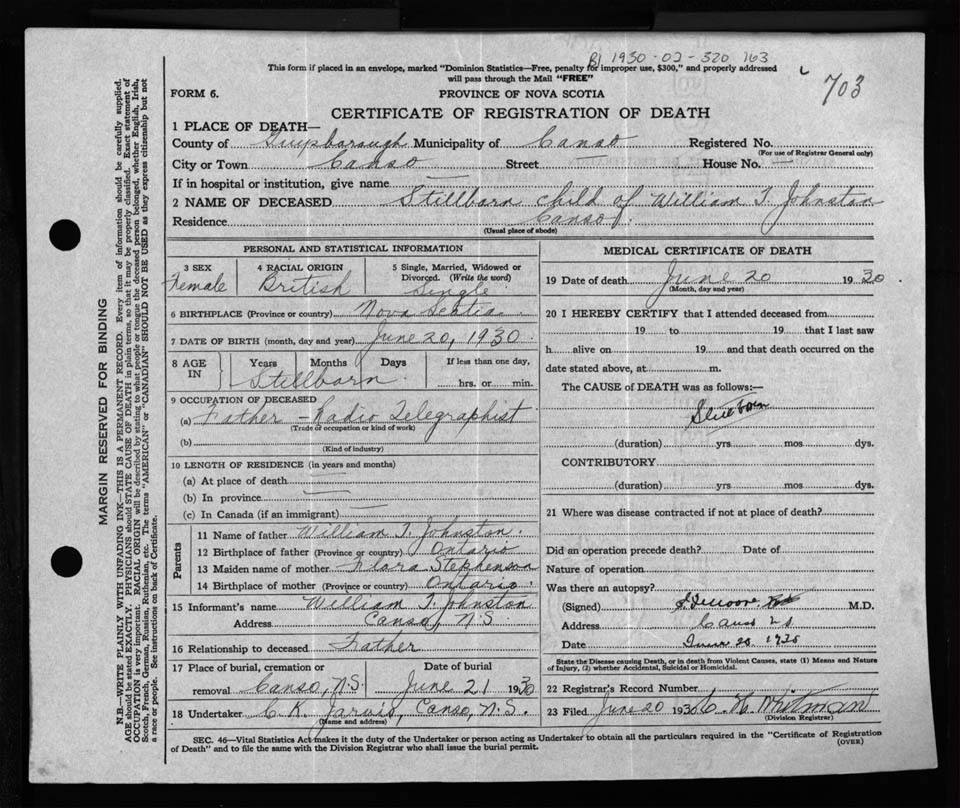 RJ 1930-02-320 763
703
This form if placed in an envelope, marked "Dominion Statistics—Free, penalty for improper use, $300," and properly addressed
will pass through the Mail "FREE"
FORM 6.
PROVINCE OF NOVA SCOTIA
CERTIFICATE OF REGISTRATION OF DEATH
1 PLACE OF DEATH—
County of Guysborough Municipality of Canso Registered No.
(For use of Registrar General only)
City or Town Canso Street — House No. —
If in hospital or institution, give name —
2 NAME OF DECEASED Stillborn child of William T. Johnston
Residence Canso
(Usual place of abode)
PERSONAL AND STATISTICAL INFORMATION
3 SEX Female
4 RACIAL ORIGIN British
5 Single, Married, Widowed or Divorced. (Write the word) Single
6 BIRTHPLACE (Province or country) Nova Scotia
7 DATE OF BIRTH (month, day and year) June 20, 1930
8 AGE IN Years Months Days If less than one day, hrs. or min.
Stillborn
9 OCCUPATION OF DECEASED
(a) Father - Radio Telegraphist
(Trade or occupation or kind of work)
(b)
(Kind of industry)
10 LENGTH OF RESIDENCE (in years and months)
(a) At place of death —
(b) In province —
(c) In Canada (if an immigrant) —
Parents
11 Name of father William T. Johnston
12 Birthplace of father (Province or country) Ontario
13 Maiden name of mother Flora Stephenson
14 Birthplace of mother (Province or country) Ontario
15 Informant's name William T. Johnston
Address Canso, N.S.
16 Relationship to deceased Father
17 Place of burial, cremation or removal Canso, N.S.
Date of burial June 21 1930
18 Undertaker C. K. Jarvis, Canso, N.S.
(Name and address)
MEDICAL CERTIFICATE OF DEATH
19 Date of death June 20 1930
(Month, day and year)
20 I HEREBY CERTIFY that I attended deceased from
19 to 19 that I last saw
h alive on 19 and that death occurred on the
date stated above, at m.
The CAUSE of DEATH was as follows:—
Still born
(duration) yrs. mos dys.
CONTRIBUTORY
(duration) yrs. mos dys.
21 Where was disease contracted if not at place of death?
Did an operation precede death? Date of
Nature of operation
Was there an autopsy?
(Signed) Moore M.D.
Address Canso N S
Date June 20 1930
State the Disease causing Death, or in death from Violent Causes, state (1) Means and Nature
of Injury, (2) whether Accidental, Suicidal or Homicidal.
22 Registrar's Record Number
23 Filed June 20 1930 C. H. Whitman
(Division Registrar)
SEC. 46—Vital Statistics Act makes it the duty of the Undertaker or person acting as Undertaker to obtain all the particulars required in the "Certificate of Registration
of Death" and to file the same with the Division Registrar who shall issue the burial permit.
(OVER)
MARGIN RESERVED FOR BINDING
N.B.—WRITE PLAINLY WITH UNFADING INK—THIS IS A PERMANENT RECORD. Every item of information should be carefully supplied.
AGE should be stated EXACTLY. PHYSICIANS should STATE CAUSE OF DEATH in plain terms, so that it may be properly classified. Exact statement of
OCCUPATION is very important. RACIAL ORIGIN will be described by stating to what people or tongue the deceased person belonged, whether English, Irish,
Scotch, French, German, Russian, Ruthenian, etc. The terms "AMERICAN" or "CANADIAN" SHOULD NOT BE USED as they express citizenship but not
a race or people. See instructions on back of Certificate.